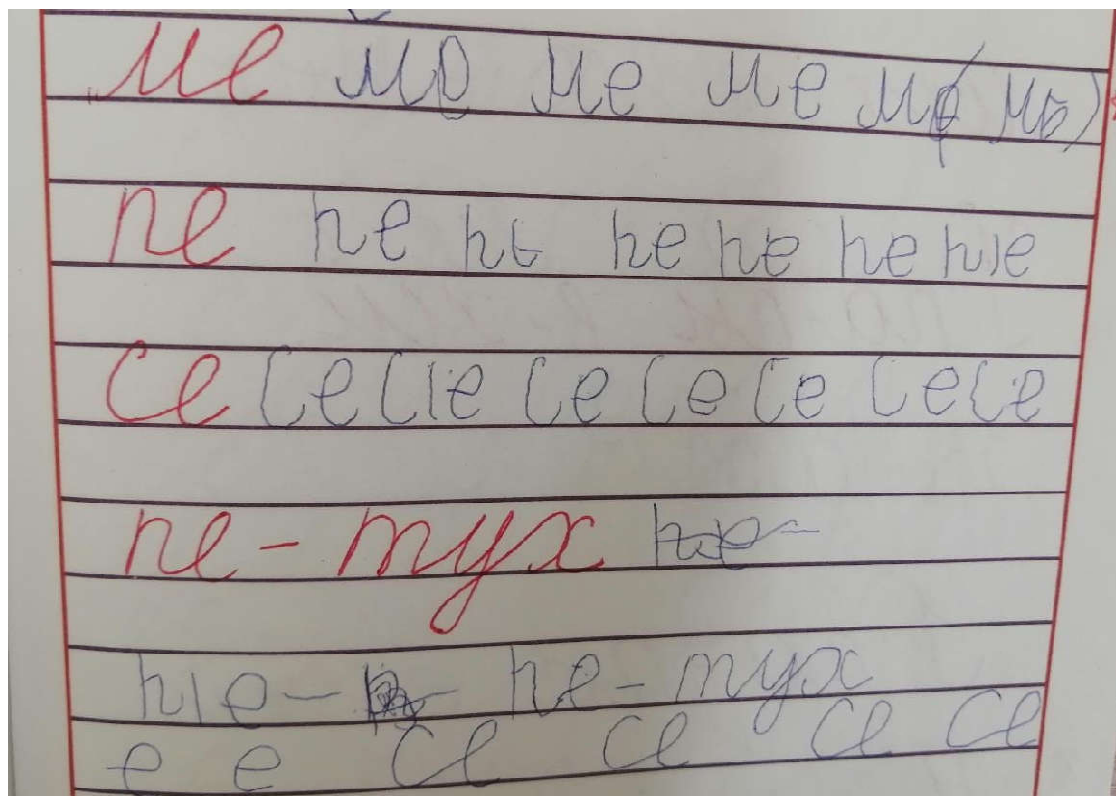 ме ме ме ме ме
пе пе пе пе пе пе пе
се се се се се се се се
пе - тух пе-
пе - пе - тух
е е се се се се